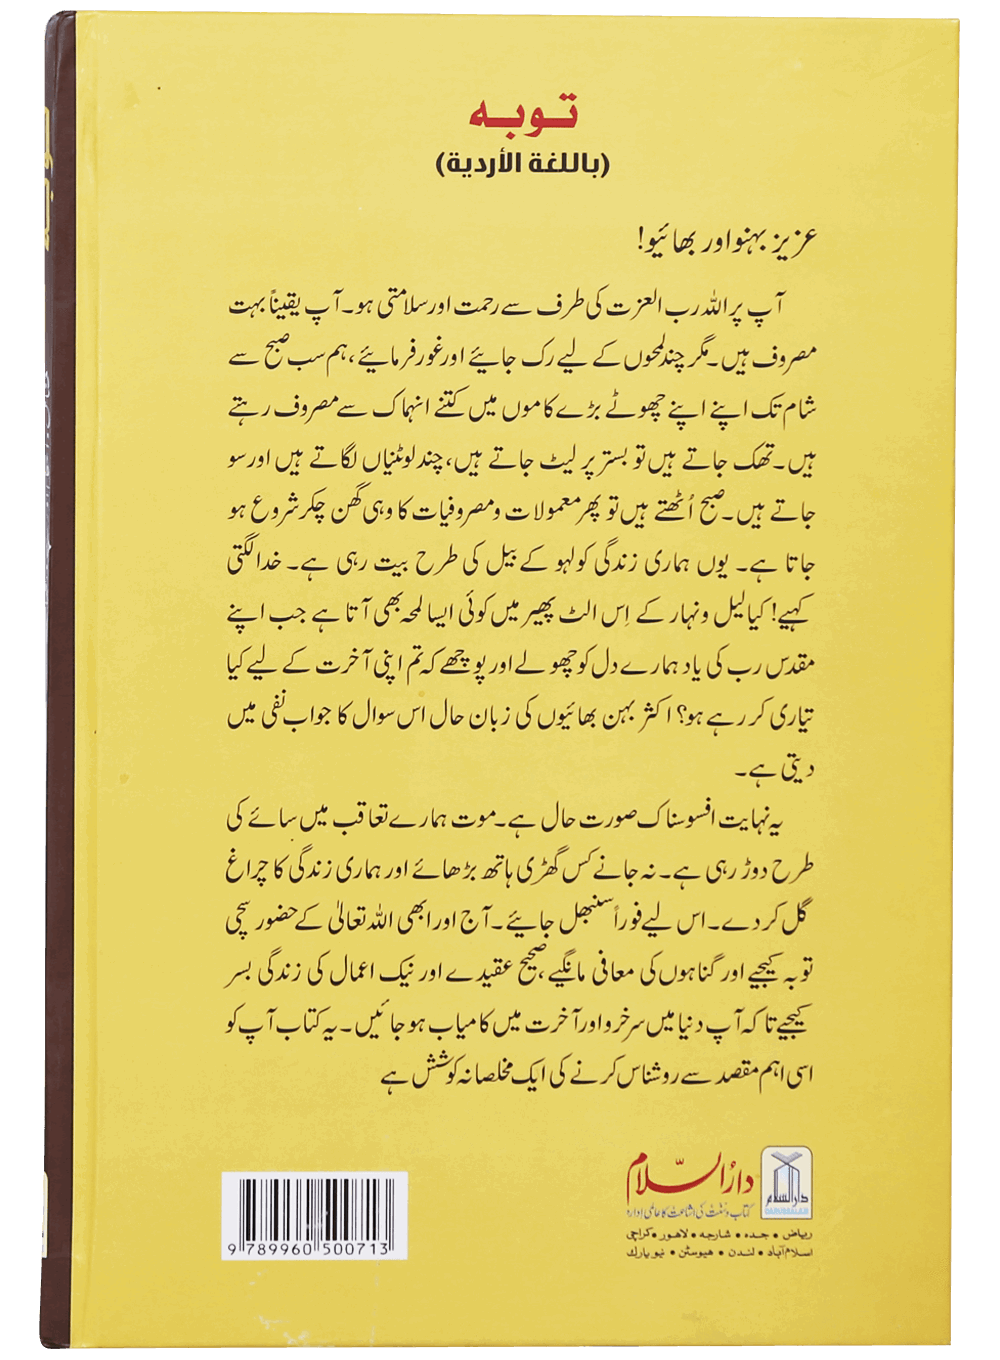 توبہ
(باللغة الأردية)
عزیز بہنو اور بھائیو!
آپ پر اللہ رب العزت کی طرف سے رحمت اور سلامتی ہو۔ آپ یقیناً بہت
مصروف ہیں۔ مگر چند لمحوں کے لیے رک جایئے اور غور فرمایئے، ہم سب صبح سے
شام تک اپنے اپنے چھوٹے بڑے کاموں میں کتنے انہماک سے مصروف رہتے
ہیں۔ تھک جاتے ہیں تو بستر پر لیٹ جاتے ہیں، چند لوٹنیاں لگاتے ہیں اور سو
جاتے ہیں۔ صبح اُٹھتے ہیں تو پھر معمولات و مصروفیات کا وہی گھن چکر شروع ہو
جاتا ہے۔ یوں ہماری زندگی کولہو کے بیل کی طرح بیت رہی ہے۔ خدا لگتی
کہیے! کیا لیل و نہار کے اِس الٹ پھیر میں کوئی ایسا لمحہ بھی آتا ہے جب اپنے
مقدس رب کی یاد ہمارے دل کو چھولے اور پوچھے کہ تم اپنی آخرت کے لیے کیا
تیاری کر رہے ہو؟ اکثر بہن بھائیوں کی زبان حال اس سوال کا جواب نفی میں
دیتی ہے۔
یہ نہایت افسوسناک صورت حال ہے۔ موت ہمارے تعاقب میں سائے کی
طرح دوڑ رہی ہے۔ نہ جانے کس گھڑی ہاتھ بڑھائے اور ہماری زندگی کا چراغ
گل کر دے۔ اس لیے فوراً سنبھل جایئے۔ آج اور ابھی اللہ تعالیٰ کے حضور سچی
توبہ کیجیے اور گناہوں کی معافی مانگیے، صحیح عقیدے اور نیک اعمال کی زندگی بسر
کیجیے تا کہ آپ دنیا میں سرخرو اور آخرت میں کامیاب ہو جائیں۔ یہ کتاب آپ کو
اسی اہم مقصد سے روشناس کرنے کی ایک مخلصانہ کوشش ہے
دارالسلام
دارُالسّلام
DARUSSALAM
کتاب و سنت کی اشاعت کا عالمی ادارہ
ریاض • جدہ • شارجہ • لاہور • کراچی
اسلام آباد • لندن • ہیوسٹن • نیو یارک
9 789960 500713
توبہ